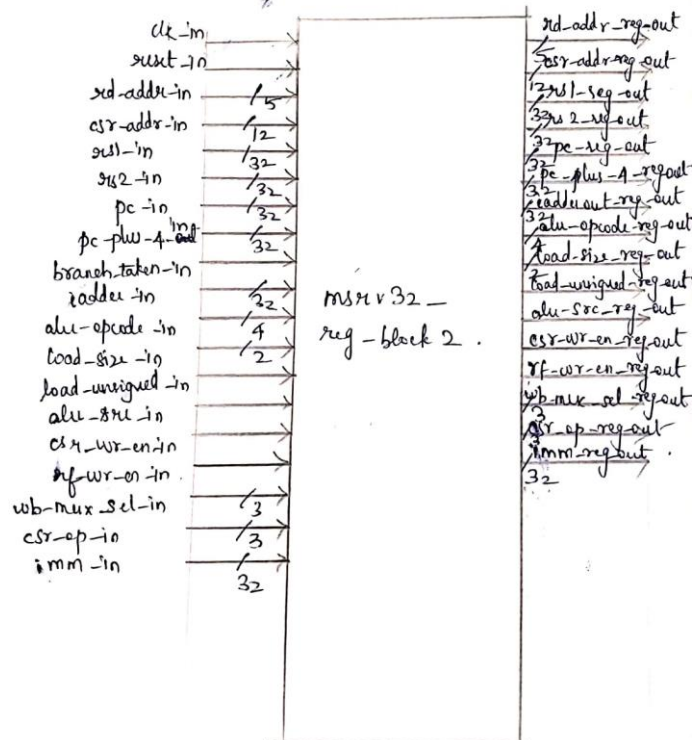 clk_in
reset_in
rd-addr-in
5
csr-addr-in
12
rs1-in
32
rs2-in
32
pc-in
32
pc-plus-4-in
32
branch_taken-in
iadder-in
32
alu-opcode-in
4
load_size-in
2
load_unsigned-in
alu-src-in
csr-wr-en-in
rf-wr-en-in
wb-mux_sel-in
3
csr-op-in
3
imm-in
32
msrv32_
reg-block2.
rd-addr-reg-out
5
csr-addr-reg out
12
rs1-reg-out
32
rs2-reg-out
32
pc-reg-out
32
pc-plus-4-reg out
32
iadder out-reg-out
32
alu-opcode-reg-out
4
load-size_reg-out
2
load_unsigned-reg-out
alu-src_reg-out
csr-wr_en_reg-out
rf-wr-en_reg-out
wb-mux_sel-reg out
3
csr_op-reg-out
3
imm-reg out
32